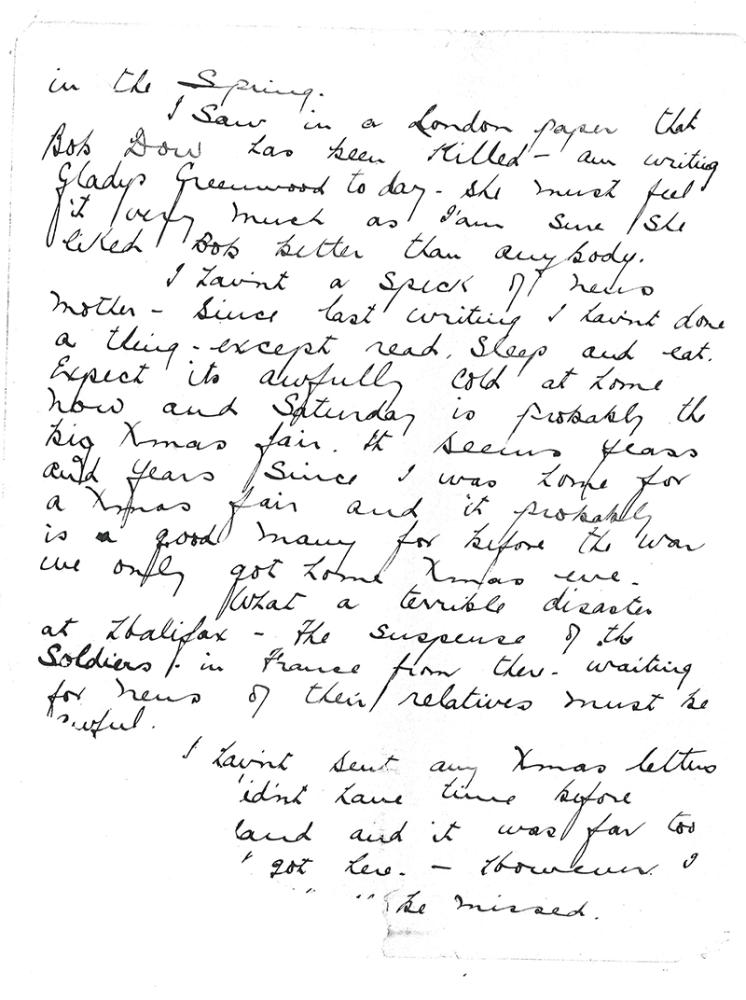 in the Spring.
I Saw in a London paper that
Bob Dow has been Killed - am writing
Gladys Greenwood to day - she must feel
it very much as I'am sure she
liked Bob better than anybody.
I havint a Speck of news
Mother - Since last writing I havint done
a thing - except read, Sleep and eat.
Expect its awfully cold at home
now and Saturday is probably the
big Xmas fair. It seems years
and years Since I was home for
a Xmas fair and it probably
is a good many for before the war
we only got home Xmas eve.
What a terrible disaster
at Halifax - the suspense of the
Soldiers in France from there waiting
for news of their relatives must be
awful.
I havint sent any Xmas letters
idnt have time before
land and it was far too
got here. - However I
be missed.